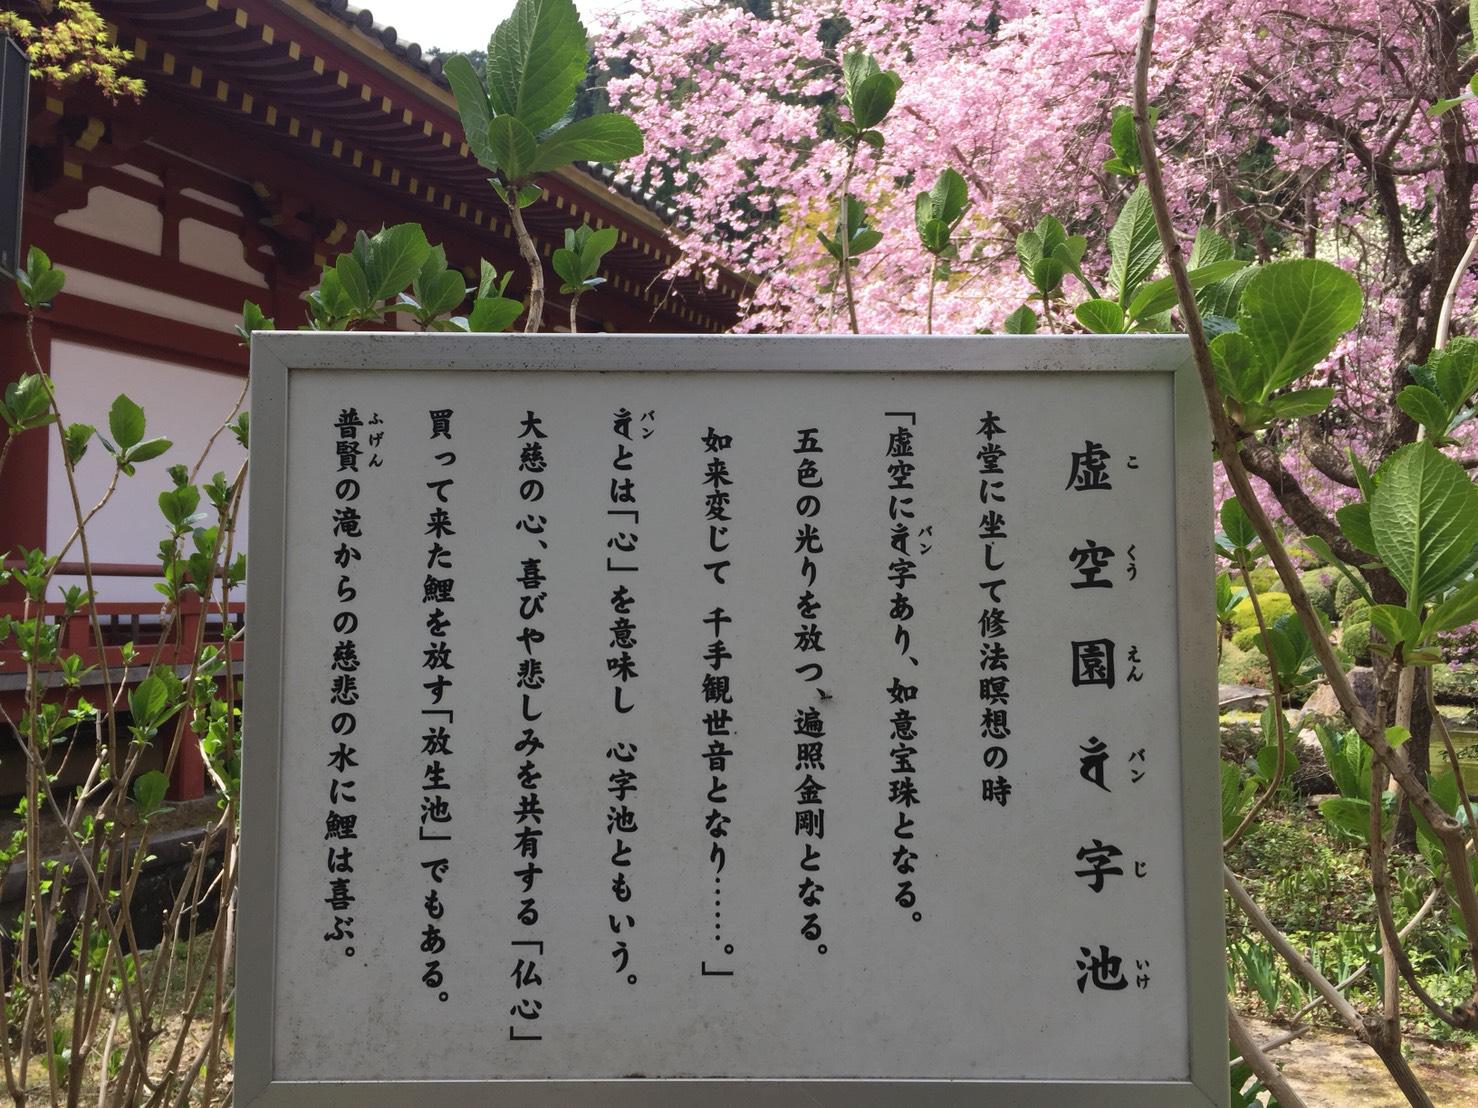 虚空園𑖪𑖽字池
こくうえんバンじいけ
本堂に坐して修法瞑想の時
「虚空に𑖪𑖽字あり、如意宝珠となる。
バン
五色の光りを放つ、遍照金剛となる。
如来変じて 千手観世音となり……。」
𑖪𑖽とは「心」を意味し 心字池ともいう。
バン
大慈の心、喜びや悲しみを共有する「仏心」
買って来た鯉を放す「放生池」でもある。
普賢の滝からの慈悲の水に鯉は喜ぶ。
ふげん